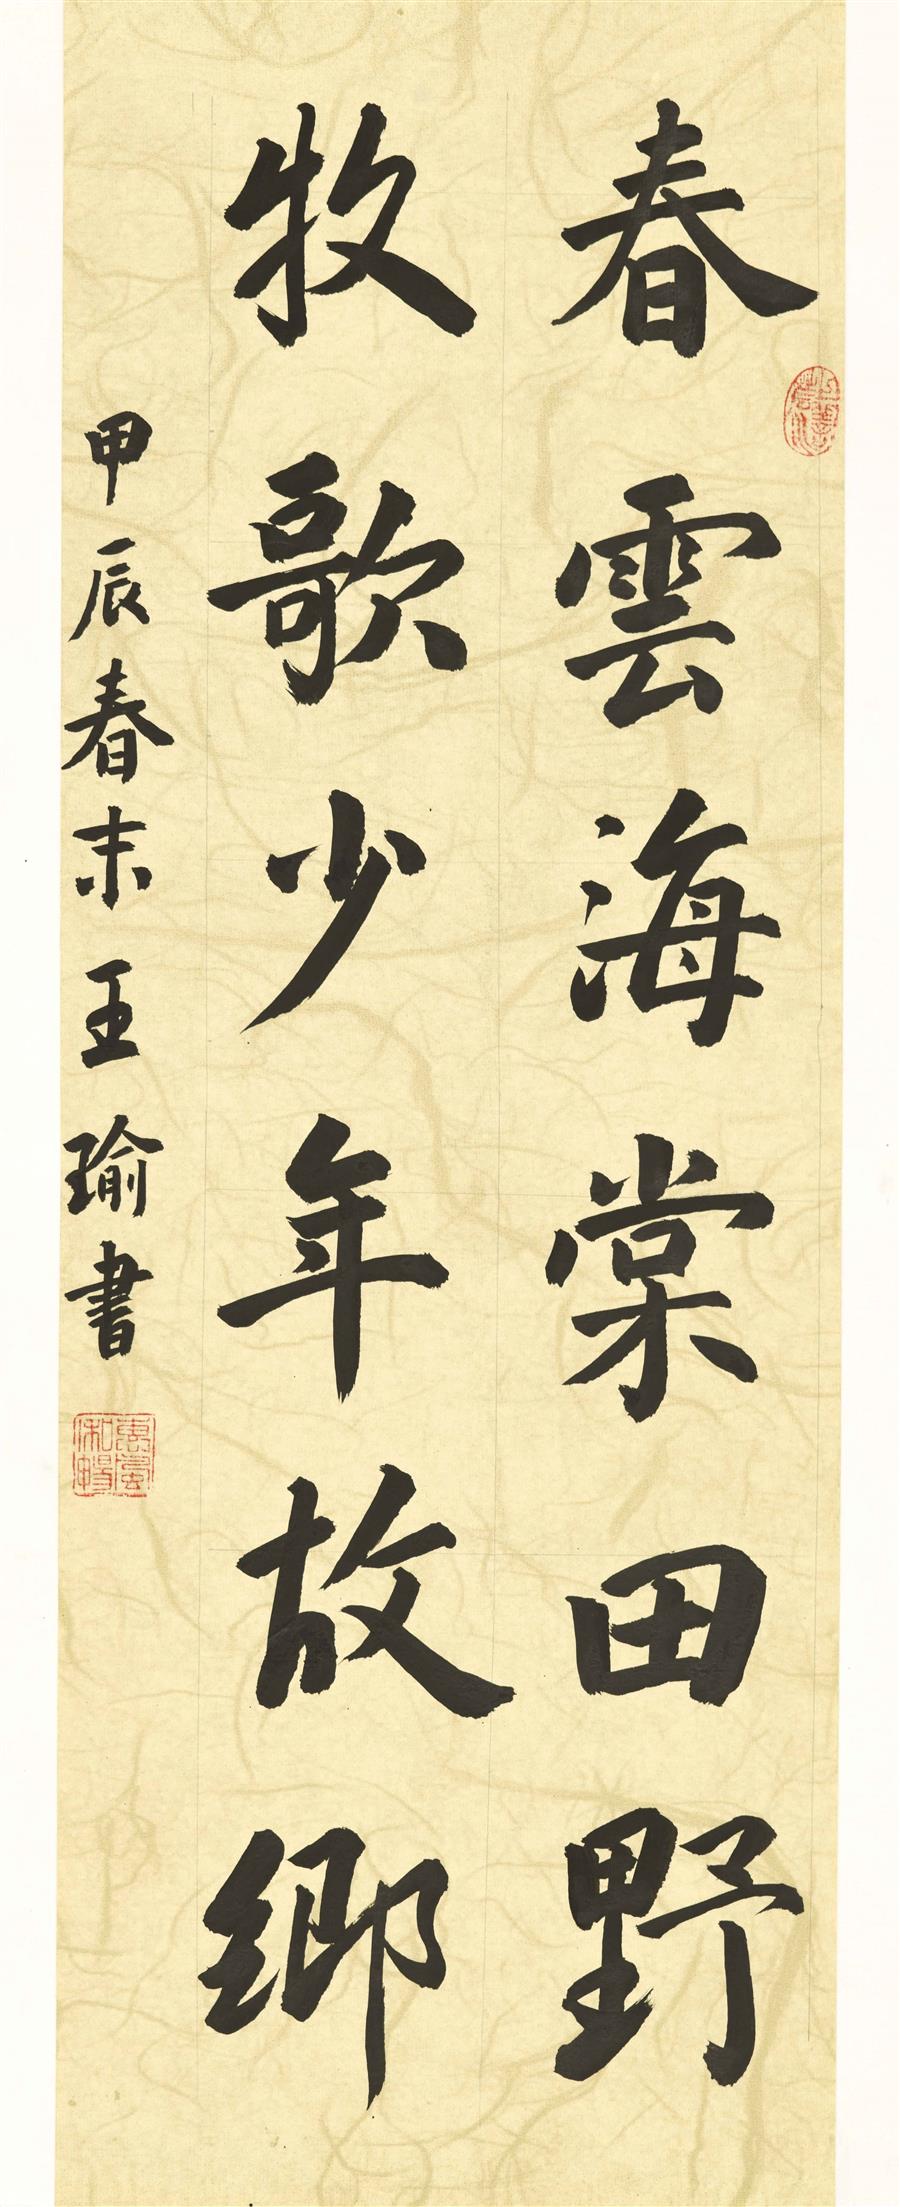 春雲海棠田野
牧歌少年故鄉
甲辰春末王瑜書
惠風和暢